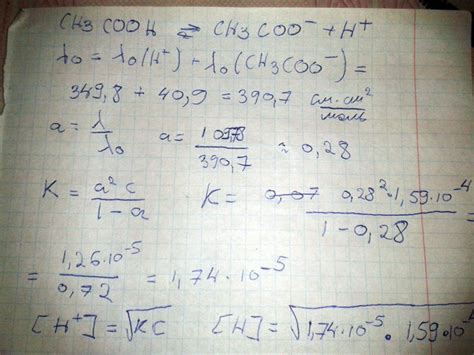 CH3COOH ⇄ CH3COO⁻ + H⁺
λ₀ = λ₀(H⁺) + λ₀(CH3COO⁻) =
349,8 + 40,9 = 390,7 См.см²/моль
a = λ/λ₀ a = /390,7 ≈ 0,28
K = a²c/1-a K = 0,28²·1,59·10⁻⁴/1-0,28 =
= 1,26·10⁻⁵/0,72 = 1,74·10⁻⁵
[H⁺] = √KC [H] = √1,74·10⁻⁵·1,59·10⁻⁴